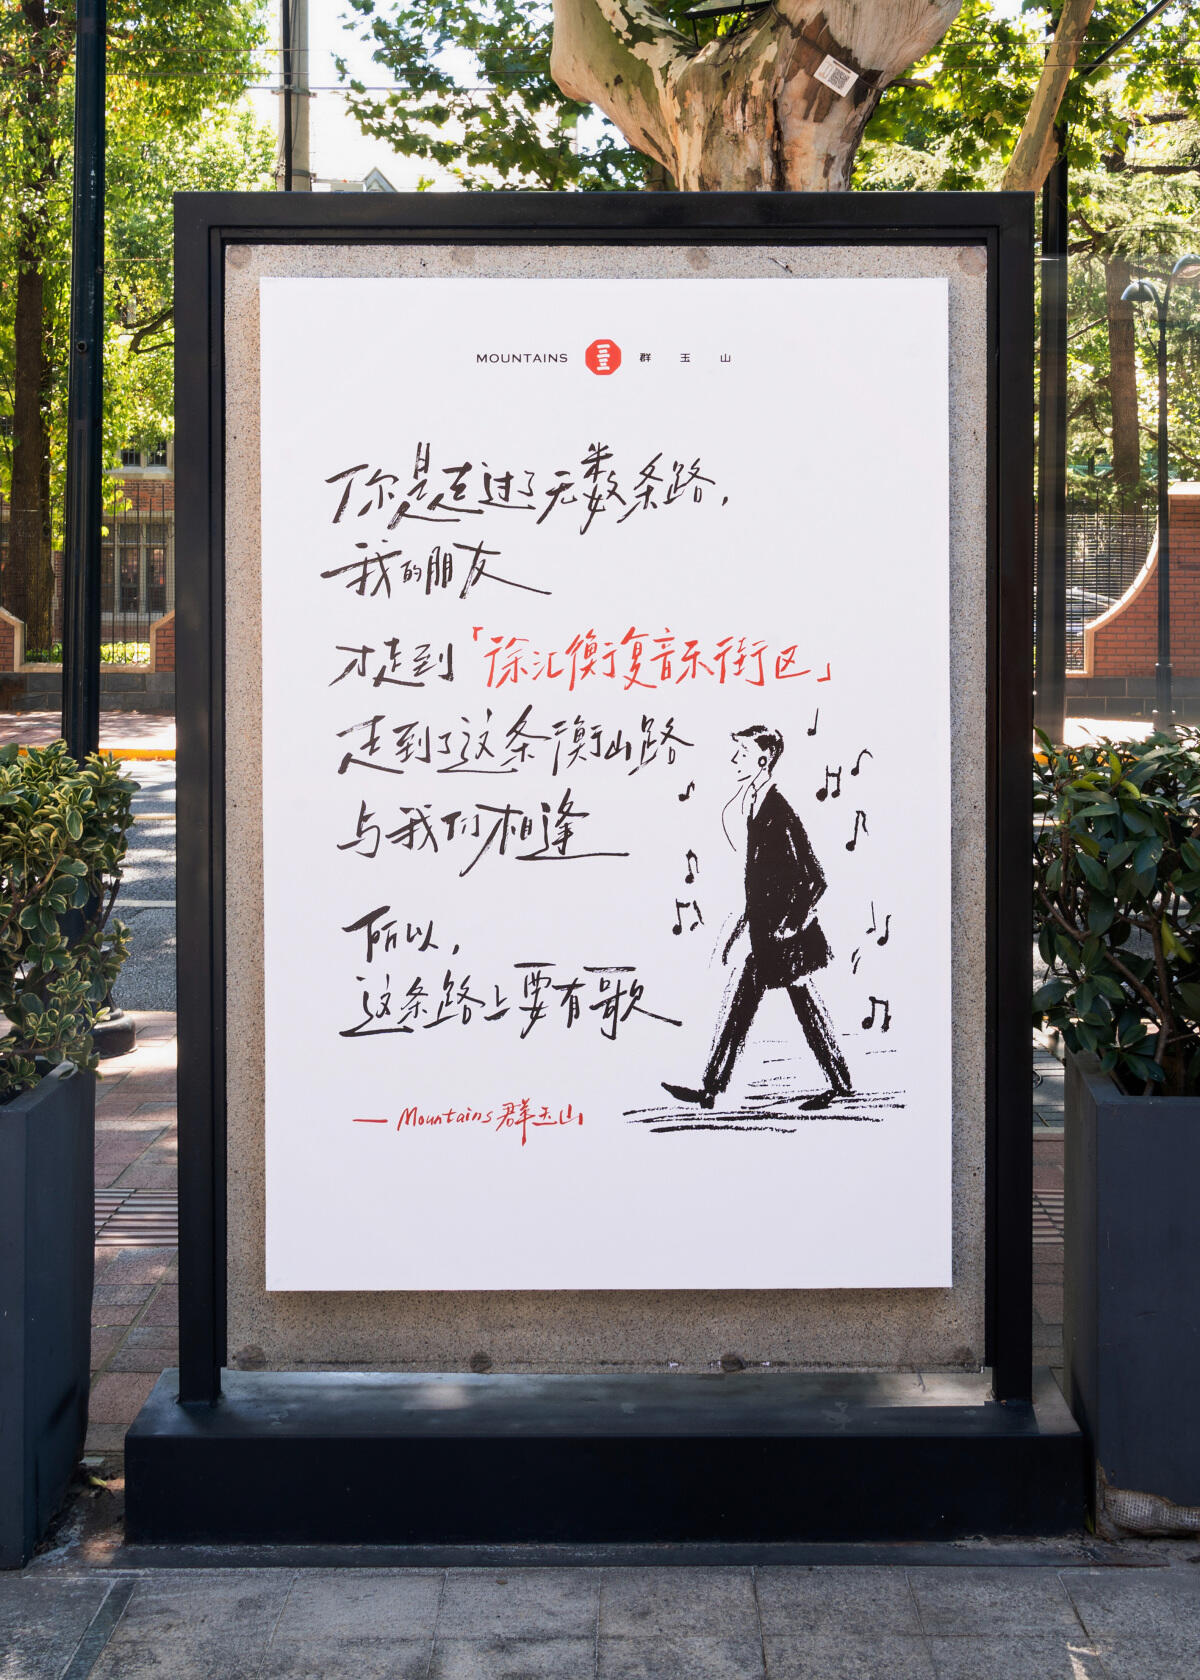 MOUNTAINS 群玉山
你是走过了无数条路，
我的朋友
才走到「徐汇衡复音乐街区」
走到了这条衡山路
与我们相逢
所以，
这条路上要有歌
— Mountains 群玉山